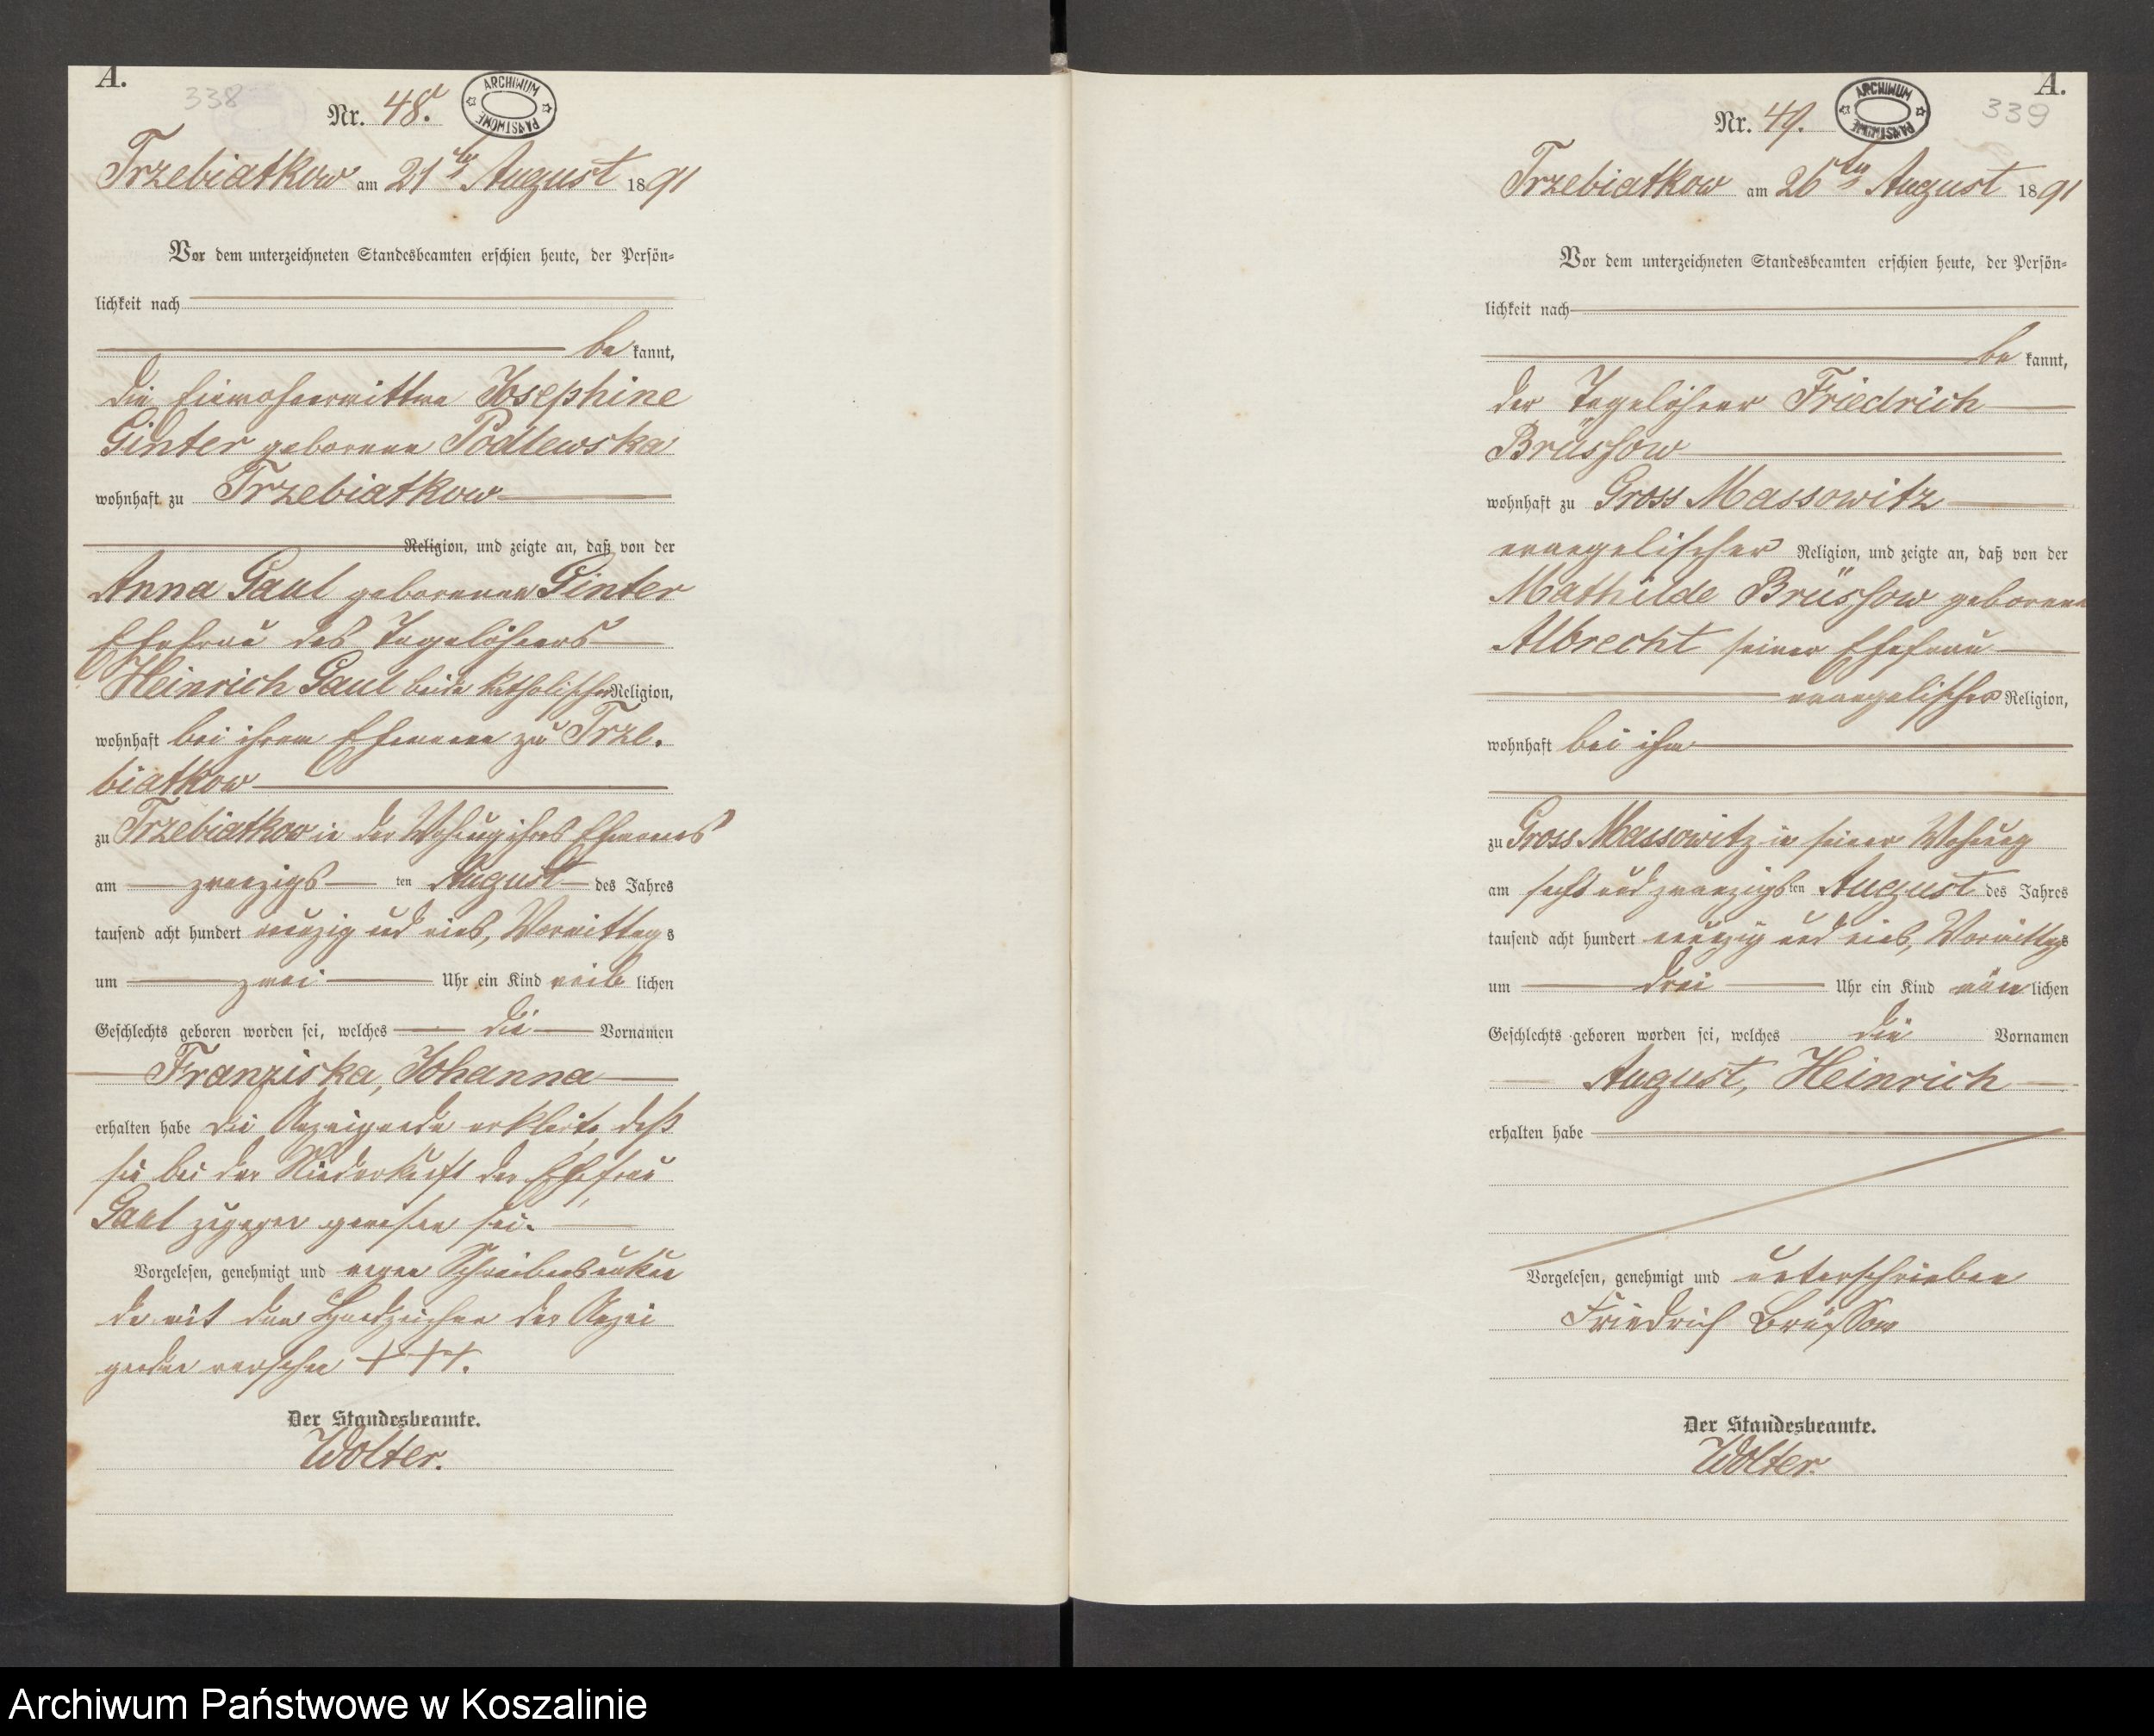 A.
338
Nr. 48.
ARCHIWUM PAŃSTWOWE
Trzebiatkow am 21ten August 1891
Vor dem unterzeichneten Standesbeamten erschien heute, der Persön-
lichkeit nach
be kannt,
die Einwohnerwittwe Josephine
Ginter geborene Podlewska
wohnhaft zu Trzebiatkow
Religion, und zeigte an, daß von der
Anna Gaul geborenen Ginter
Ehefrau des Tagelöhners
Heinrich Gaul beide katholischer Religion,
wohnhaft bei ihrem Ehemann zu Trze-
biatkow
zu Trzebiatkow in der Wohnung ihres Ehemannes
am zwanzigs ten August des Jahres
tausend acht hundert neunzig und eins, Vormittags
um zwei Uhr ein Kind weib lichen
Geschlechts geboren worden sei, welches die Vornamen
Franziska, Johanna
erhalten habe die Anzeigende erklärte, daß
sie bei der Niederkunft der Ehefrau
Gaul zugegen gewesen sei.
Vorgelesen, genehmigt und wegen Schreibensunkun
de mit dem Handzeichen der Anzei
genden versehen + + +.
Der Standesbeamte.
Wolter.
A.
339
Nr. 49.
ARCHIWUM PAŃSTWOWE
Trzebiatkow am 26ten August 1891
Vor dem unterzeichneten Standesbeamten erschien heute, der Persön-
lichkeit nach
be kannt,
der Tagelöhner Friedrich
Brüssow
wohnhaft zu Gross Massowitz
evangelischer Religion, und zeigte an, daß von der
Mathilde Brüssow geborene
Albrecht seiner Ehefrau
evangelischer Religion,
wohnhaft bei ihm
zu Gross Massowitz in seiner Wohnung
am sechs und zwanzigs ten August des Jahres
tausend acht hundert neunzig und eins, Vormittags
um drei Uhr ein Kind män lichen
Geschlechts geboren worden sei, welches die Vornamen
August, Heinrich
erhalten habe
Vorgelesen, genehmigt und unterschrieben
Friedrich Brüssow
Der Standesbeamte.
Wolter.
Archiwum Państwowe w Koszalinie